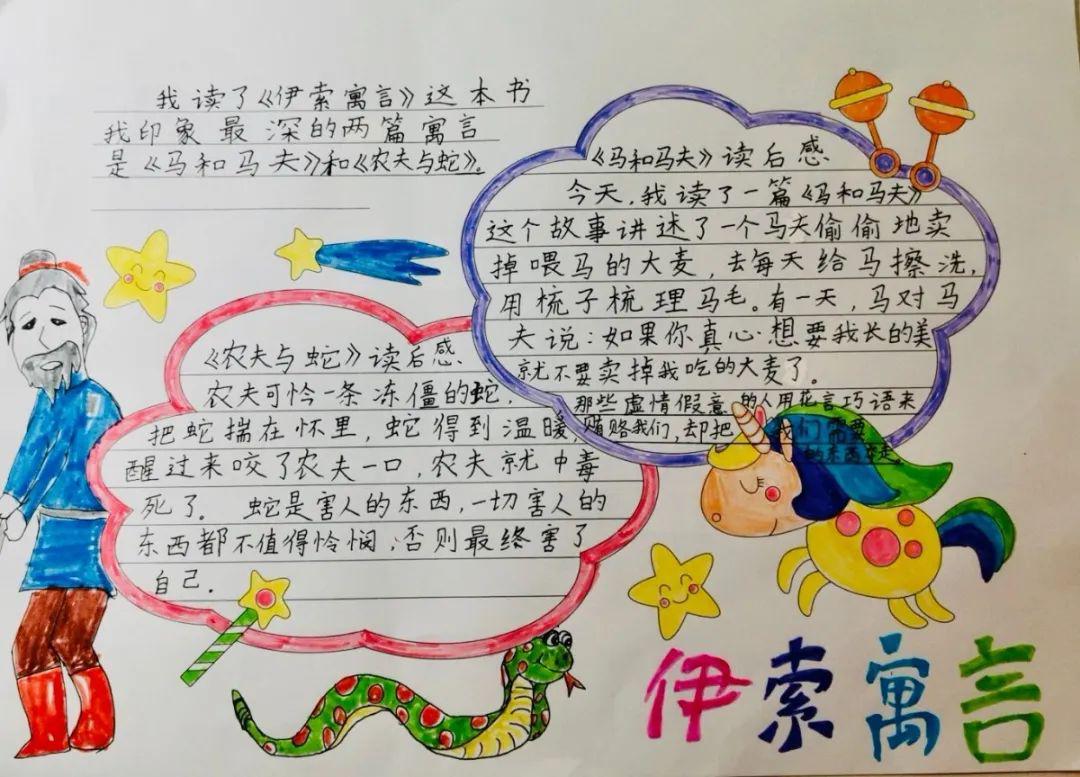 我读了《伊索寓言》这本书
我印象最深的两篇寓言
是《马和马夫》和《农夫与蛇》。
《马和马夫》读后感
今天,我读了一篇《马和马夫》
这个故事讲述了一个马夫偷偷地卖
掉喂马的大麦,去每天给马擦洗,
用梳子梳理马毛。有一天,马对马
夫说:如果你真心想要我长的美
就不要卖掉我吃的大麦了。
那些虚情假意的人用花言巧语来
贿赂我们,却把我们需要
的东西夺走。
《农夫与蛇》读后感
农夫可怜一条冻僵的蛇,
把蛇揣在怀里,蛇得到温暖,
醒过来咬了农夫一口,农夫就中毒
死了。蛇是害人的东西,一切害人的
东西都不值得怜悯,否则最终害了
自己.
伊索寓言